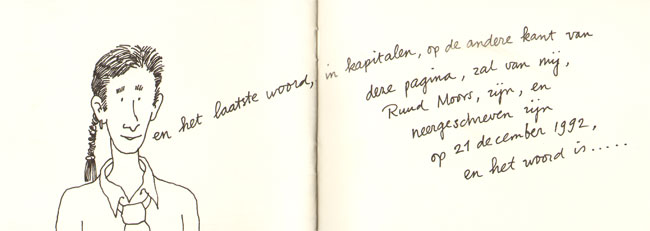 en het laatste woord, in kapitalen, op de andere kant van
deze pagina, zal van mij,
Ruud Moors, zijn, en
neergeschreven zijn
op 21 december 1992,
en het woord is.....